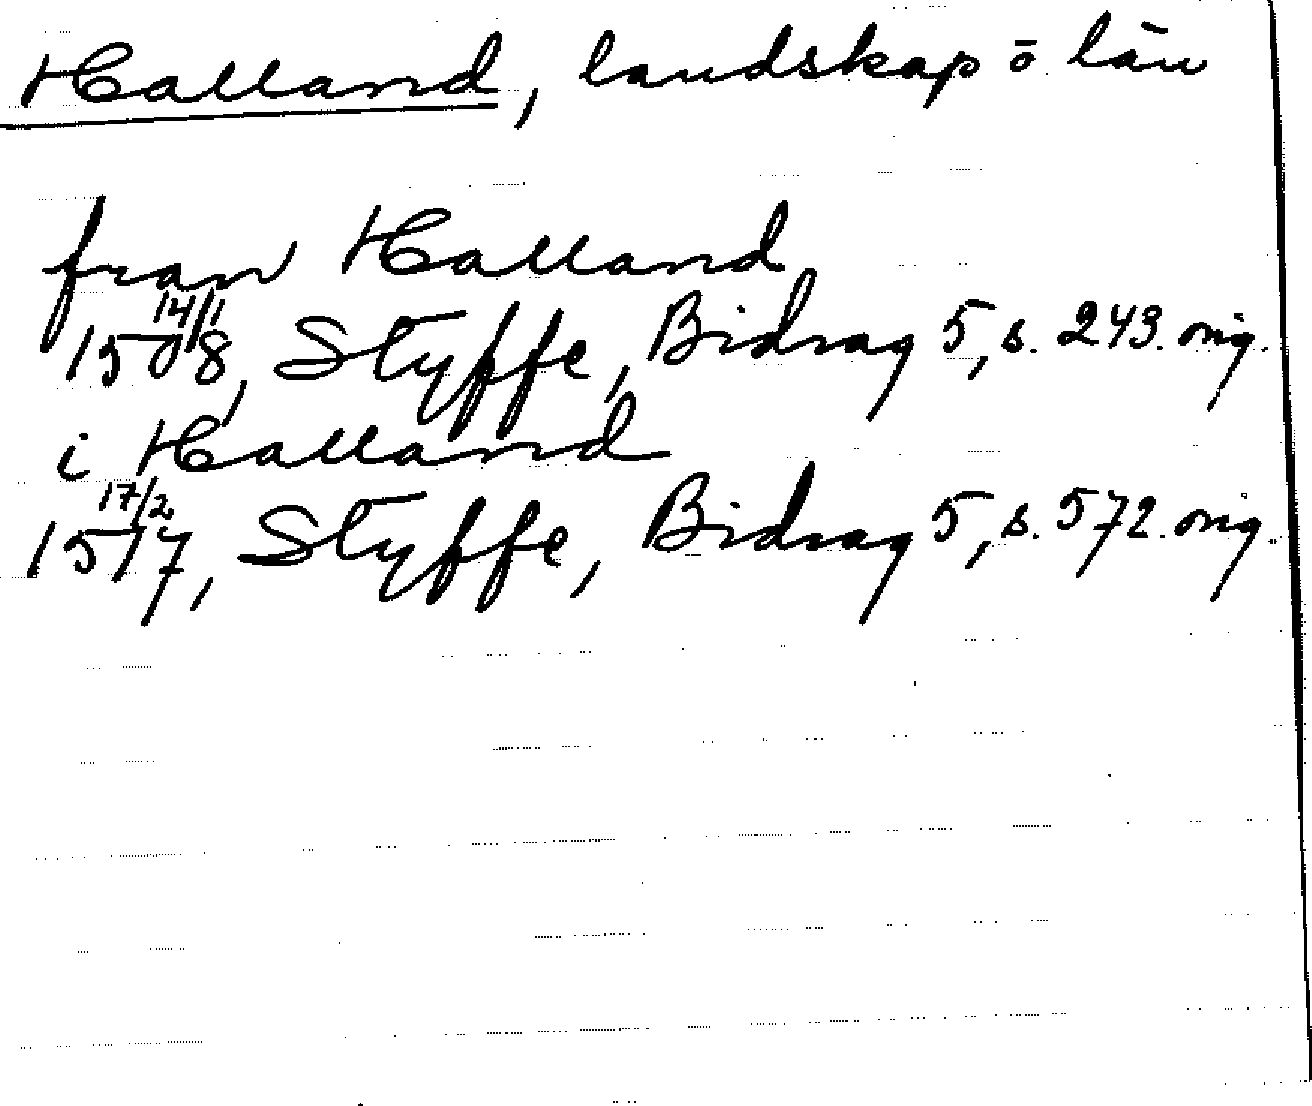 Halland, landskap o län
fran Halland
14/1
1508, Styffe, Bidrag 5, s. 243. orig.
i Halland
17/2
1517, Styffe, Bidrag 5, s. 572. orig.